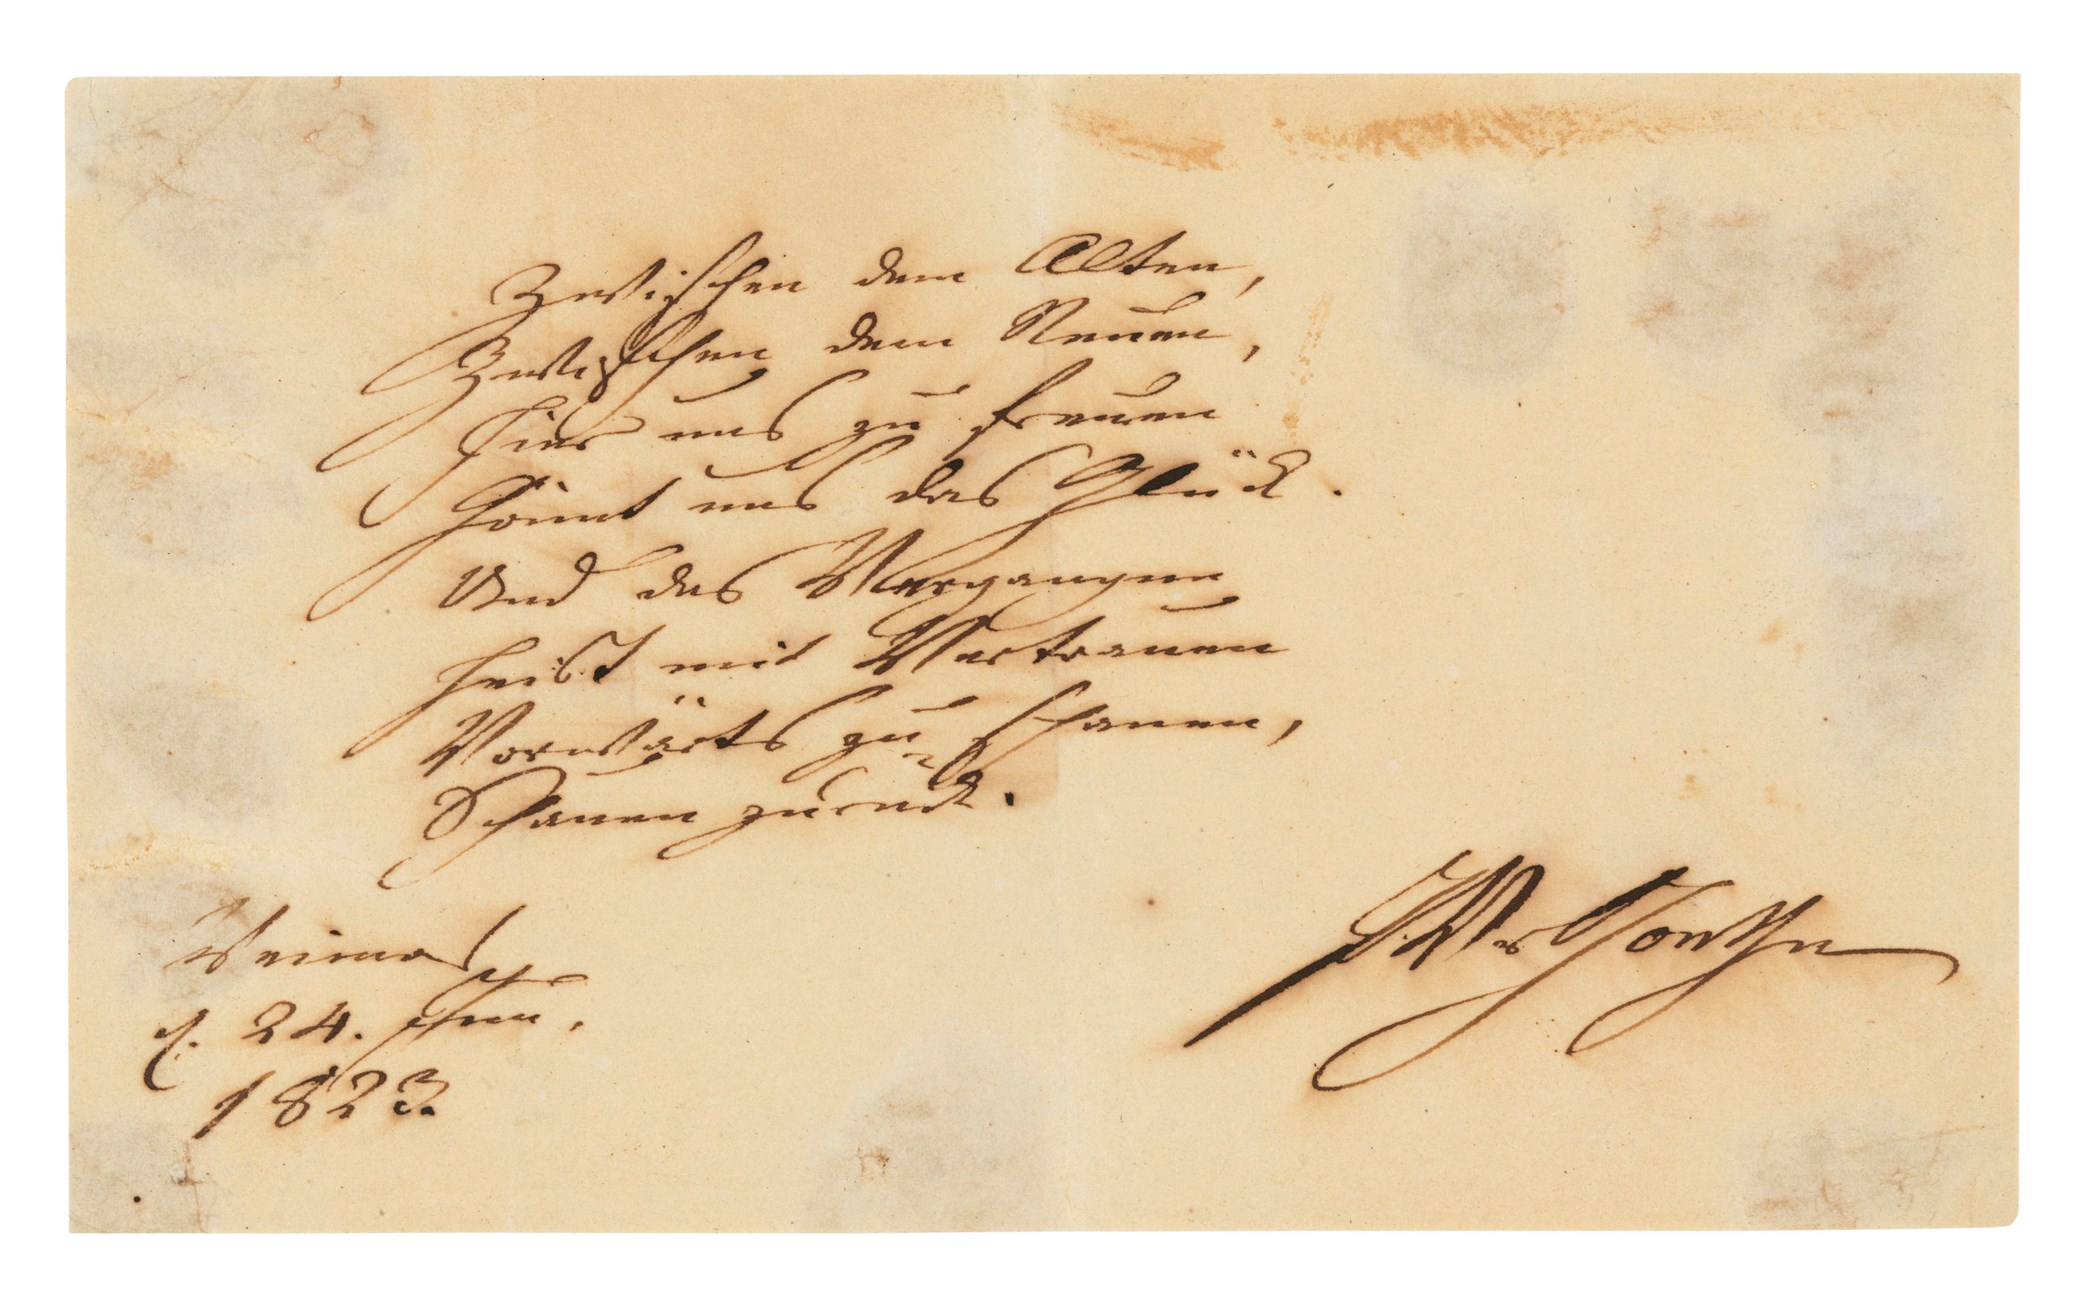 Zwischen dem Alten,
Zwischen dem Neuen,
Hier uns zu freuen
Gönnt uns das Glück.
Und das Vergangne
Heist mit Vertrauen
Vorwärts zu schauen,
Schauen zurück.
Weimar
d. 24.
1823.
JWvGoethe